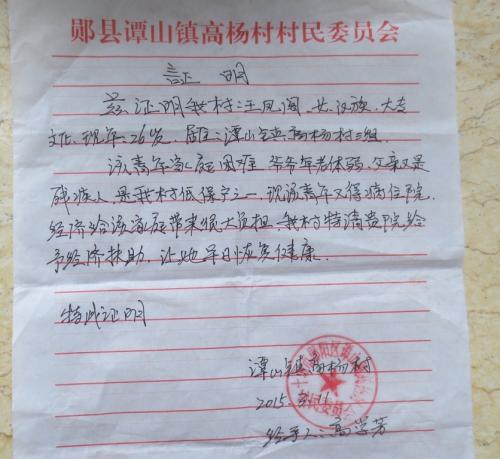 郧县谭山镇高杨村村民委员会
証 明
兹证明我村:王凤阁、女、汉族、大专
文化、现年26岁,居住谭山镇高杨村三组.
该青年家庭困难 爷爷年老体弱、父亲又是
残疾人、是我村低保户之一、现该青年又得病住院,
经济给该家庭带来很大负担、我村特请贵院给
予经济扶助、让她早日恢复健康.
特此证明
谭山镇高杨村
2015.
经手人:高学芳
村民委员会